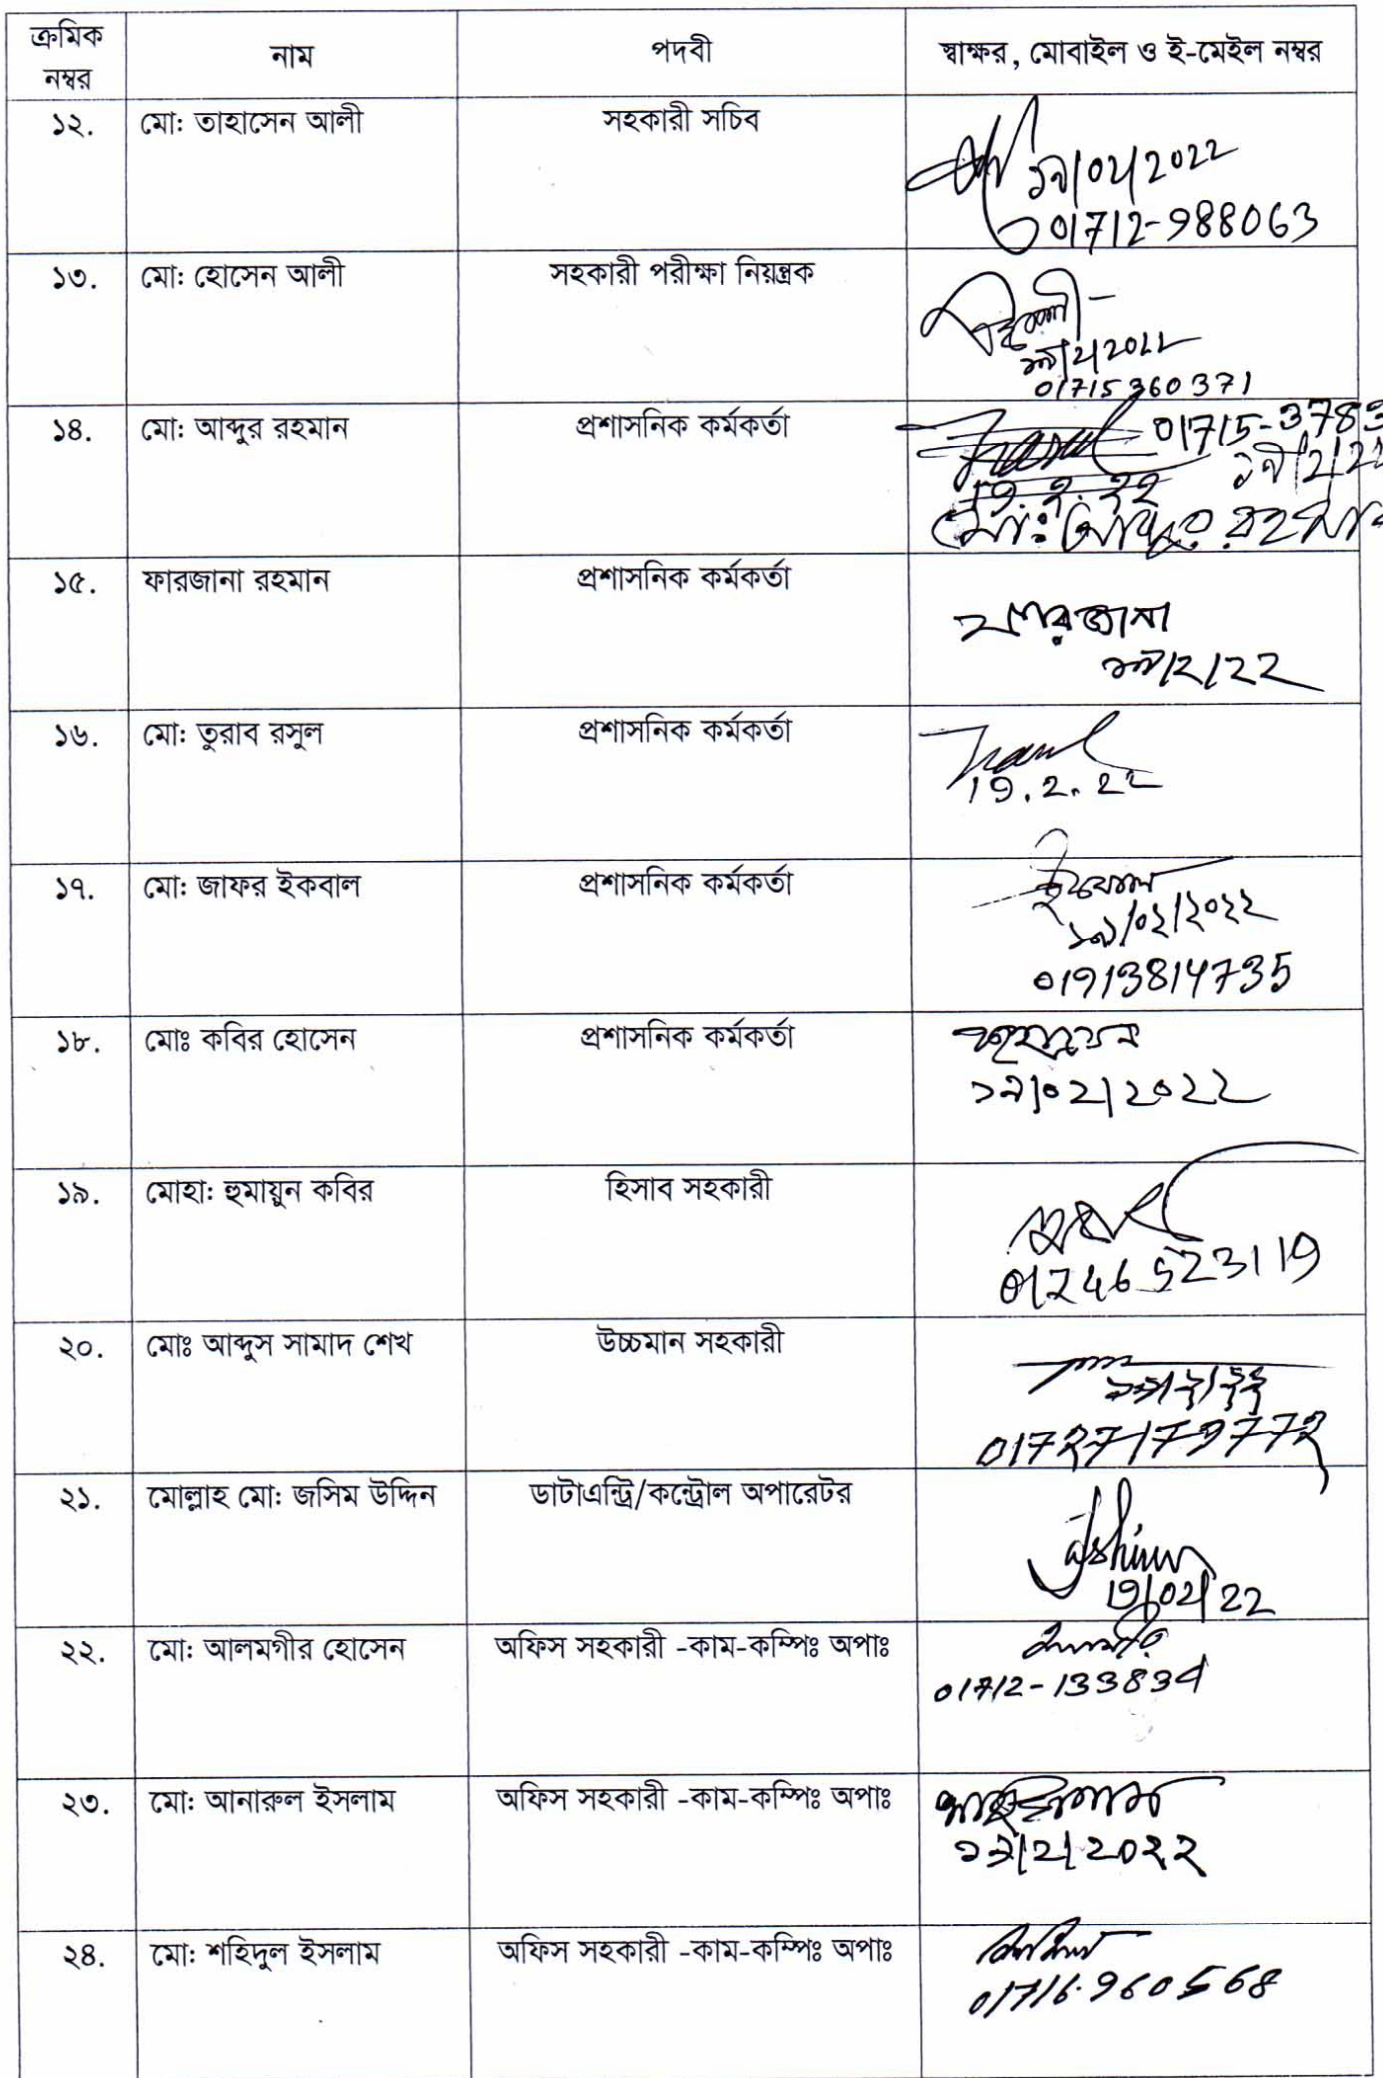 ক্রমিক নম্বর নাম পদবী স্বাক্ষর, মোবাইল ও ই-মেইল নম্বর
১২. মো: তাহাসেন আলী সহকারী সচিব
১৯/০২/2022
01712-988063
১৩. মো: হোসেন আলী সহকারী পরীক্ষা নিয়ন্ত্রক
01715360371
১৪. মো: আব্দুর রহমান প্রশাসনিক কর্মকর্তা
01715-3783
19.2.22
মো: আব্দুর রহমান
১৫. ফারজানা রহমান প্রশাসনিক কর্মকর্তা
ফারজানা
১৯/2/22
১৬. মো: তুরাব রসুল প্রশাসনিক কর্মকর্তা
19.2.22
১৭. মো: জাফর ইকবাল প্রশাসনিক কর্মকর্তা
১৯/০২/২০২২
01913814735
১৮. মোঃ কবির হোসেন প্রশাসনিক কর্মকর্তা
১৯/০2/2০22
১৯. মোহা: হুমায়ুন কবির হিসাব সহকারী
২০. মোঃ আব্দুস সামাদ শেখ উচ্চমান সহকারী
২১. মোল্লাহ মো: জসিম উদ্দিন ডাটাএন্ট্রি/কন্ট্রোল অপারেটর
Jashim
19/02/22
২২. মো: আলমগীর হোসেন অফিস সহকারী -কাম-কম্পিঃ অপাঃ
01712-133834
২৩. মো: আনারুল ইসলাম অফিস সহকারী -কাম-কম্পিঃ অপাঃ
১৯/2/20২২
২৪. মো: শহিদুল ইসলাম অফিস সহকারী -কাম-কম্পিঃ অপাঃ
01716-960568